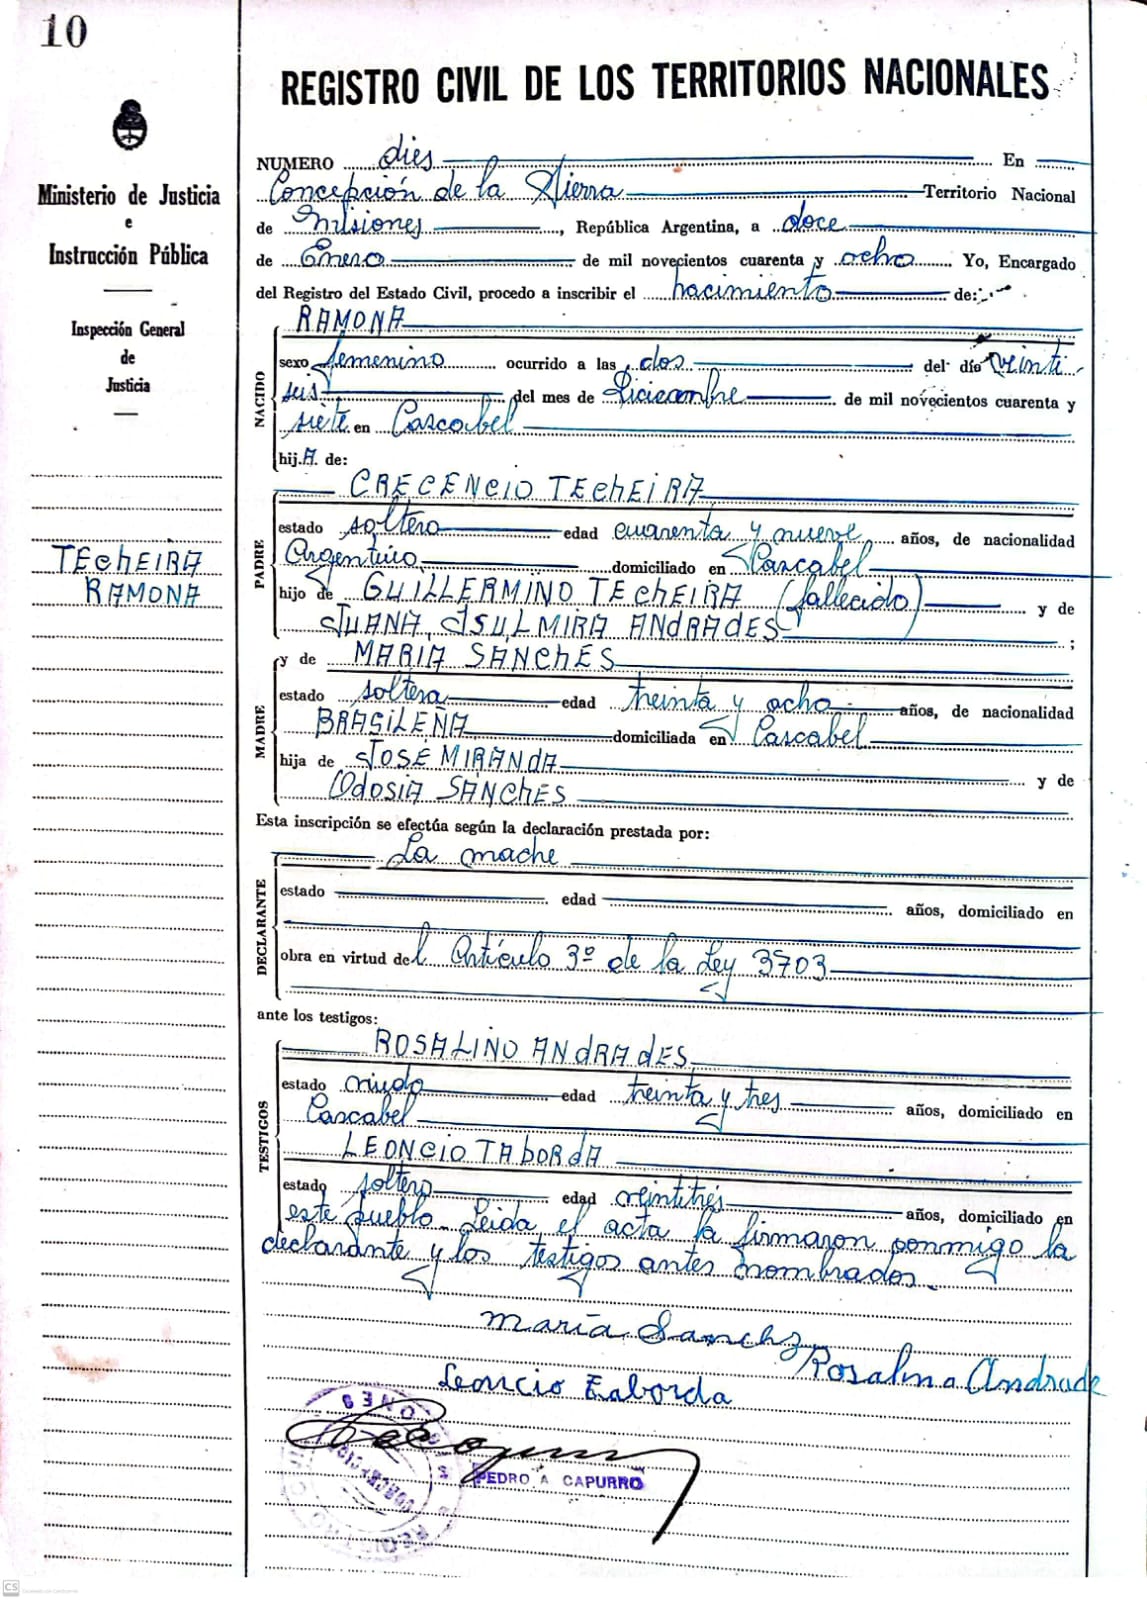 10
Ministerio de Justicia
e
Instrucción Pública
Inspección General
de
Justicia
TECHEIRA
RAMONA
REGISTRO CIVIL DE LOS TERRITORIOS NACIONALES
NUMERO dies En
Concepción de la Sierra Territorio Nacional
de Misiones, República Argentina, a doce
de Enero de mil novecientos cuarenta y ocho Yo, Encargado
del Registro del Estado Civil, procedo a inscribir el nacimiento de:
RAMONA
NACIDO
sexo femenino ocurrido a las dos del día veinti
seis del mes de Diciembre de mil novecientos cuarenta y
siete en Cascabel
hij.A. de:
PADRE
CRECENCIO TECHEIRA
estado soltero edad cuarenta y nueve años, de nacionalidad
Argentino domiciliado en Cascabel
hijo de GUILLERMINO TECHEIRA (fallecido) y de
JUANA JSULMIRA ANDRADES;
MADRE
y de MARIA SANCHES
estado soltera edad treinta y ocho años, de nacionalidad
BRASILEÑA domiciliada en Cascabel
hija de JOSÉ MIRANDA y de
OdOSIA SANCHES
Esta inscripción se efectúa según la declaración prestada por:
DECLARANTE
La madre
estado edad años, domiciliado en
obra en virtud del Artículo 3º de la Ley 3703
ante los testigos:
TESTIGOS
ROSALINO ANDRADES
estado viudo edad treinta y tres años, domiciliado en
Cascabel
LEONCIO TABORDA
estado soltero edad veintitrés años, domiciliado en
este pueblo. Leida el acta la firmaron conmigo la
declarante y los testigos antes nombrados.
María Sanchz
Rosalino Andrade
Leoncio Taborda
PEDRO A CAPURRO
CS